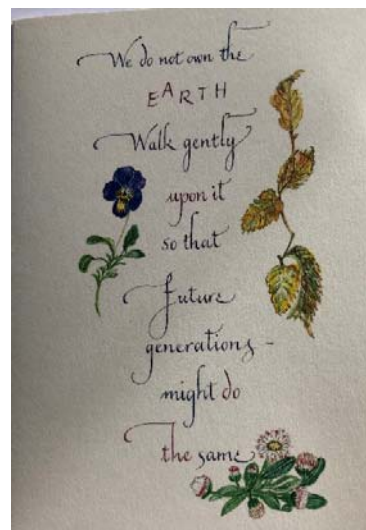 We do not own the
EARTH
Walk gently
upon it
so that
future
generations -
might do
the same